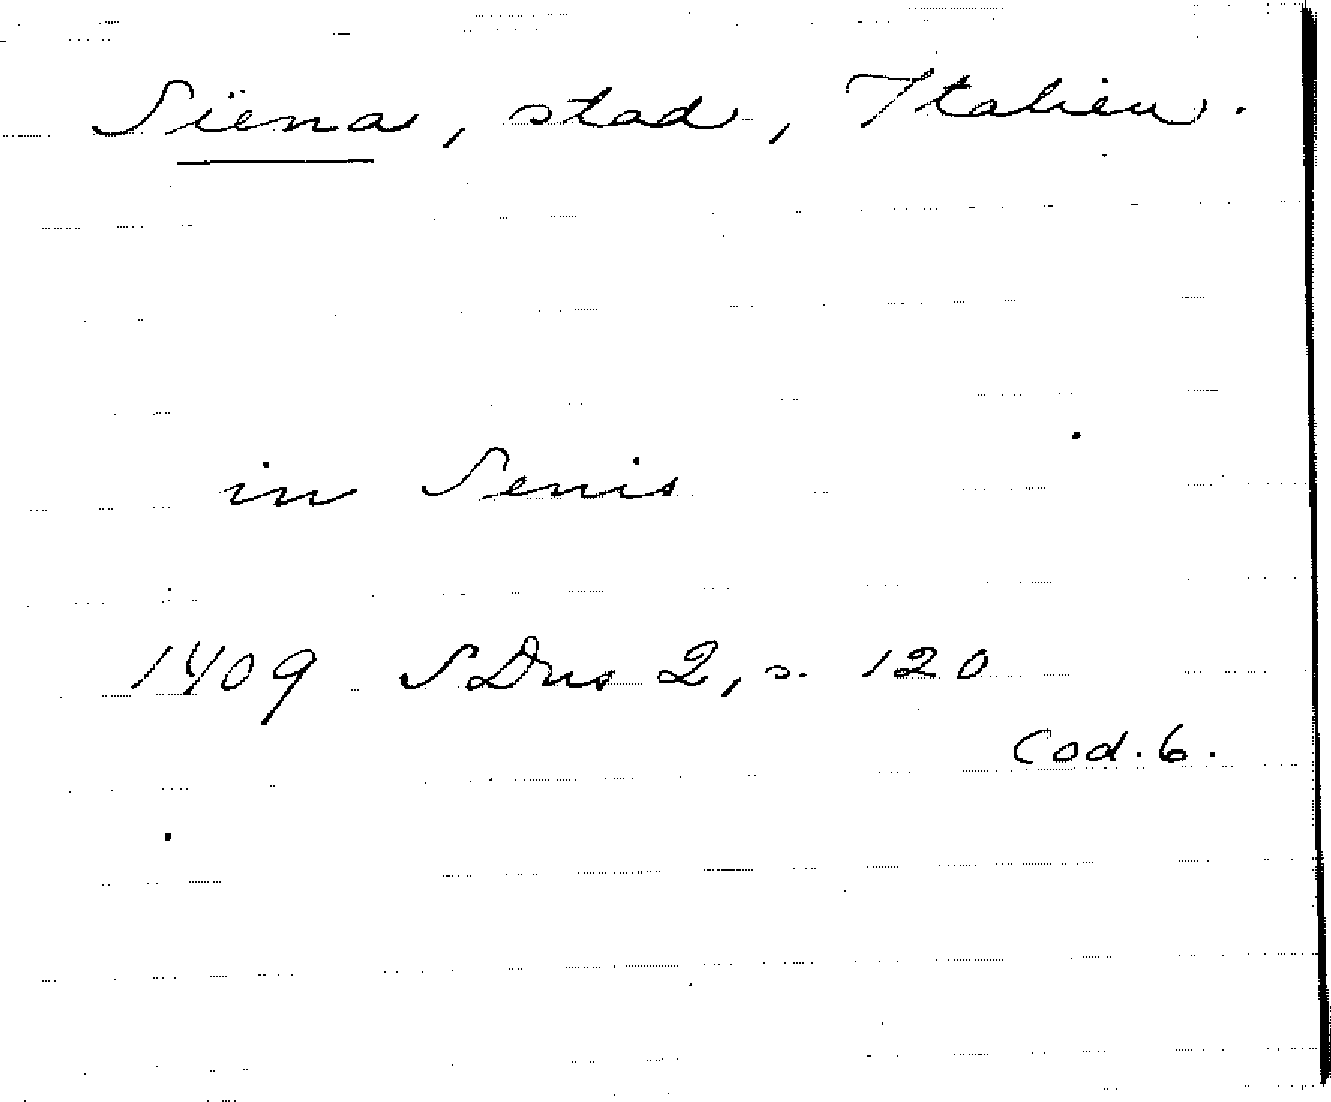 Siena, stad, Italien.
in Senis
1409 SDns 2, s. 120
Cod. 6.